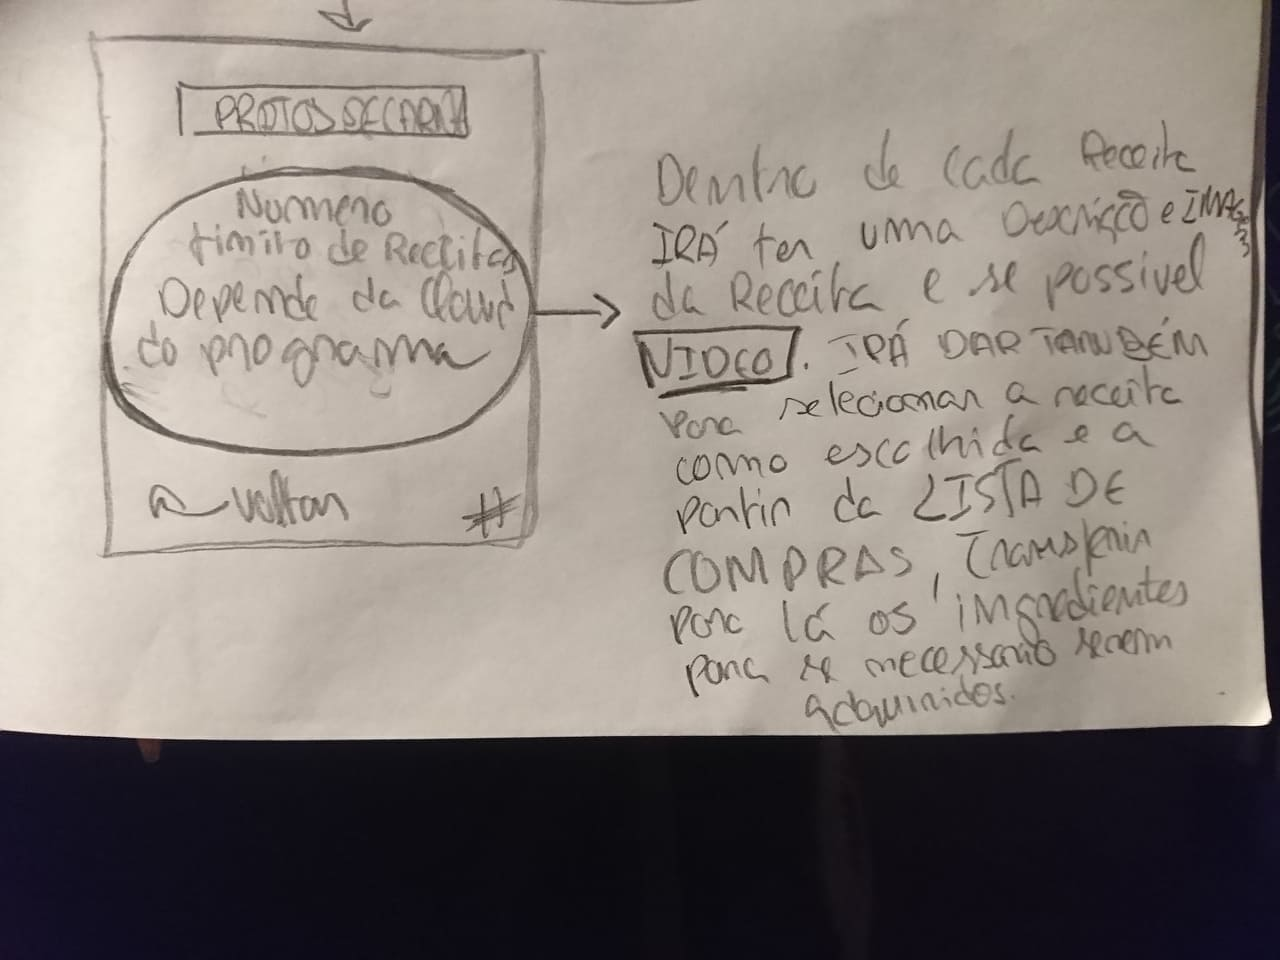 PRATOS DE CARNE
Numero
finito de Receitas
Depende da Cloud
do programa
voltar
#
Dentro de cada Receita
IRÁ ter uma Descrição e IMAGENS
da Receita e se possivel
VIDEO. IRÁ DAR TAMBÉM
para selecionar a receita
como escolhida e a
partir da LISTA DE
COMPRAS, Transferir
para lá os ingredientes
para se necessario serem
adquiridos.